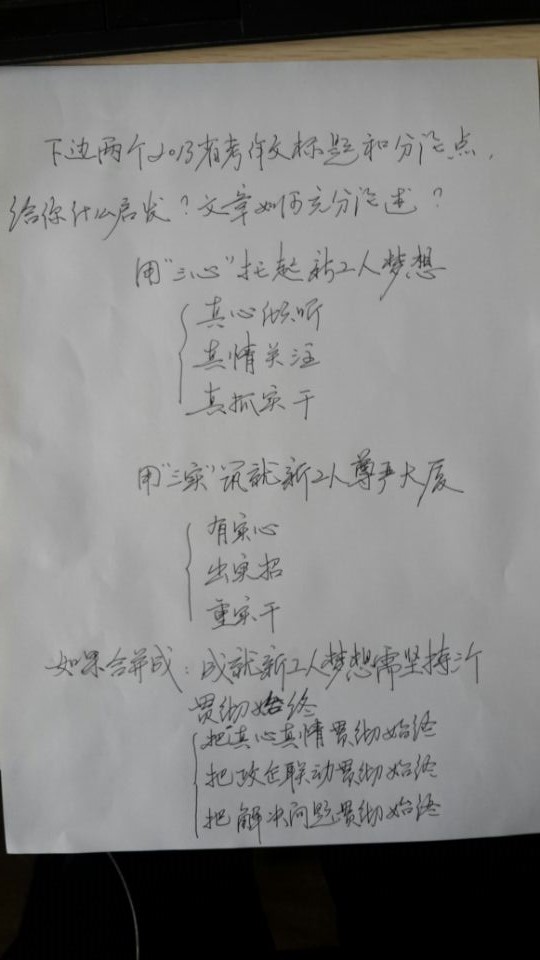 下边两个2013省考作文标题和分论点，
给你什么启发？文章如何充分论述？
用“三心”托起新工人梦想
真心倾听
真情关注
真抓实干
用“三实”筑就新工人尊严大厦
有实心
出实招
重实干
如果合并成：成就新工人梦想需坚持三个
贯彻始终
把真心真情贯彻始终
把政企联动贯彻始终
把解决问题贯彻始终